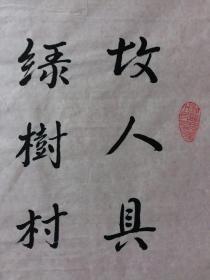 故人具
綠樹村